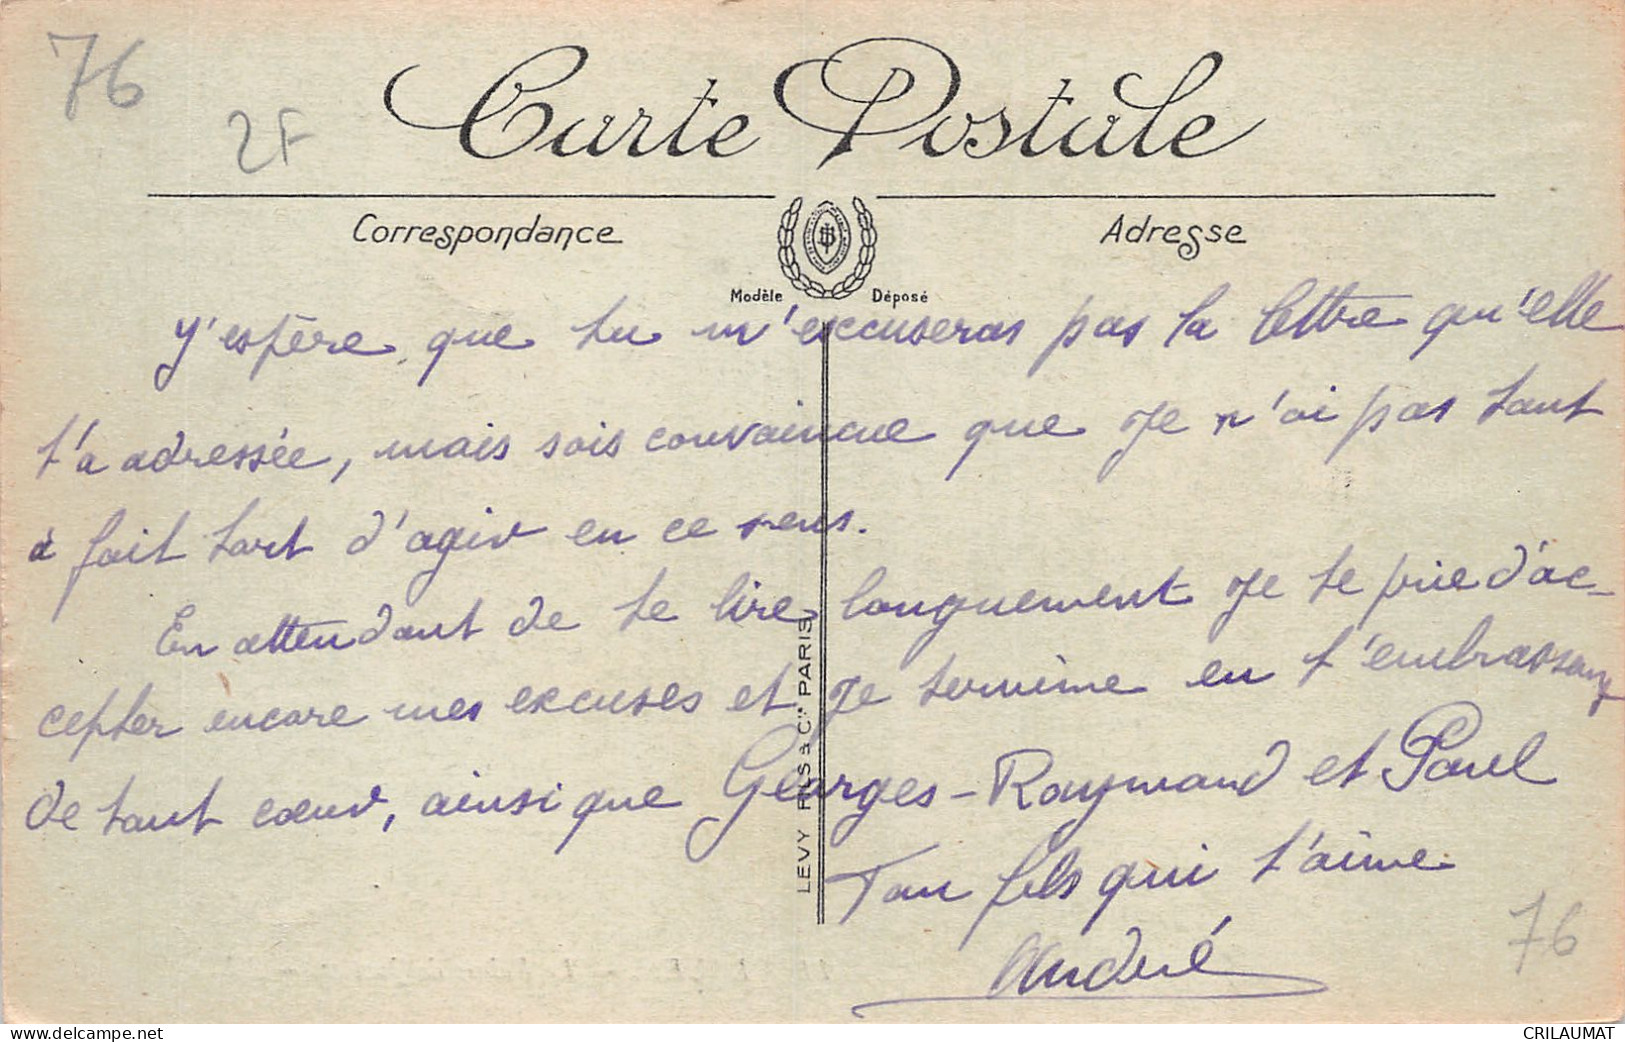 76
2F
Carte Postale
Correspondance
Adresse
Modèle Déposé
J'espère que tu m'excuseras pas la lettre qu'elle
t'a adressée, mais sois convaincue que je n'ai pas tout
à fait tort d'agir en ce sens.
En attendant de te lire longuement je te prie d'ac-
cepter encore mes excuses et je termine en t'embrassant
de tout cœur, ainsi que Georges-Raymond et Paul
Ton fils qui t'aime
André
76
LEVY FILS & Cie PARIS
CRILAUMAT